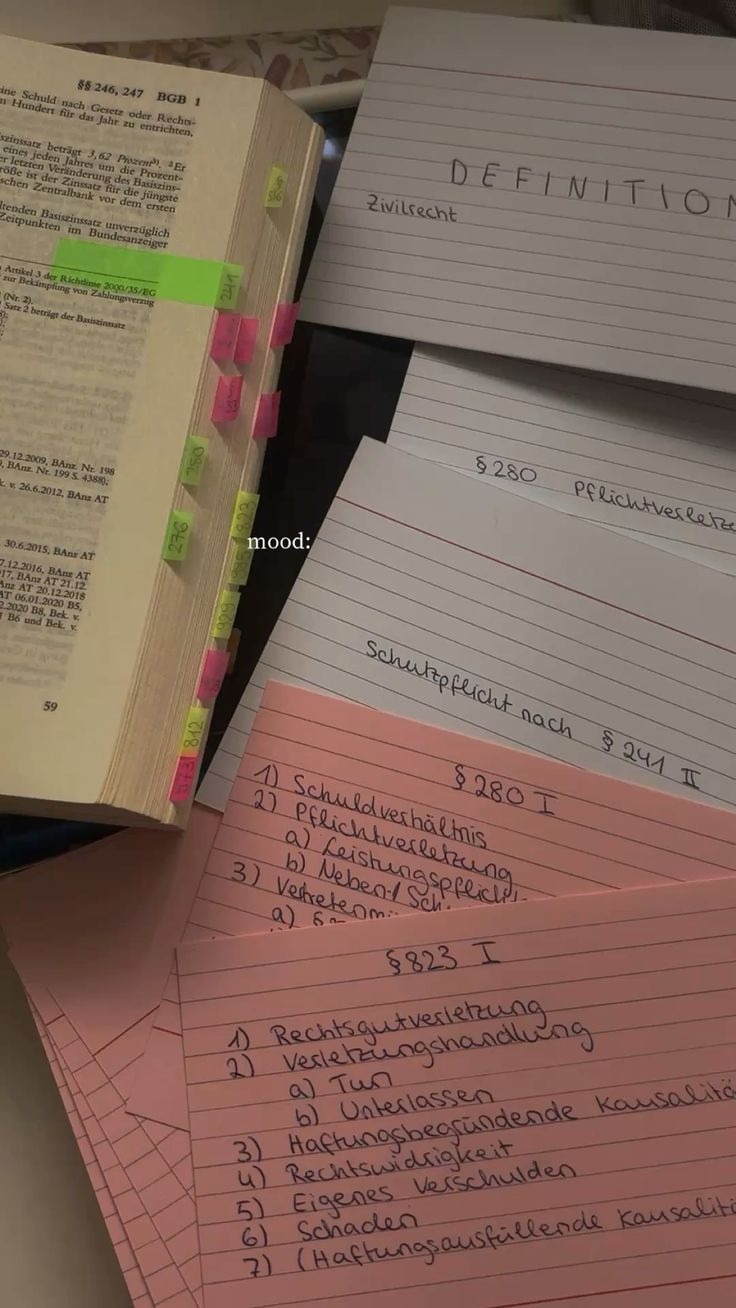 §§ 246, 247 BGB 1
ine Schuld nach Gesetz oder Rechts-
n Hundert für das Jahr zu entrichten,
szinssatz beträgt 3,62 Prozent. ²Er
eines jeden Jahres um die Prozent-
r letzten Veränderung des Basiszins-
röße ist der Zinssatz für die jüngste
schen Zentralbank vor dem ersten
ltenden Basiszinssatz unverzüglich
Zeitpunkten im Bundesanzeiger
Artikel 3 der Richtlinie 2000/35/EG
zur Bekämpfung von Zahlungsverzug
(Nr. 2).
Satz 2 beträgt der Basiszinssatz
29.12.2009, BAnz. Nr. 198
, BAnz. Nr. 199 S. 4388);
k. v. 26.6.2012, BAnz AT
30.6.2015, BAnz AT
7.12.2016, BAnz AT
017, BAnz AT 21.12.
Anz AT 20.12.2018
AT 06.01.2020 B5,
2.2020 B8, Bek. v.
B6 und Bek. v.
59
241
280
276
823
929
812
mood:
DEFINITION
Zivilrecht
§280 Pflichtverletz
Schutzpflicht nach §241 II
§280 I
1) Schuldverhältnis
2) Pflichtverletzung
a) Leistungspflich
b) Neben-/Sch.
3) Vertretenm
a) §
§823 I
1) Rechtsgutverletzung
2) Verletzungshandlung
a) Tun
b) Unterlassen
3) Haftungsbegründende Kausalitä
4) Rechtswidrigkeit
5) Eigenes Verschulden
6) Schaden
7) (Haftungsausfüllende Kausalitä